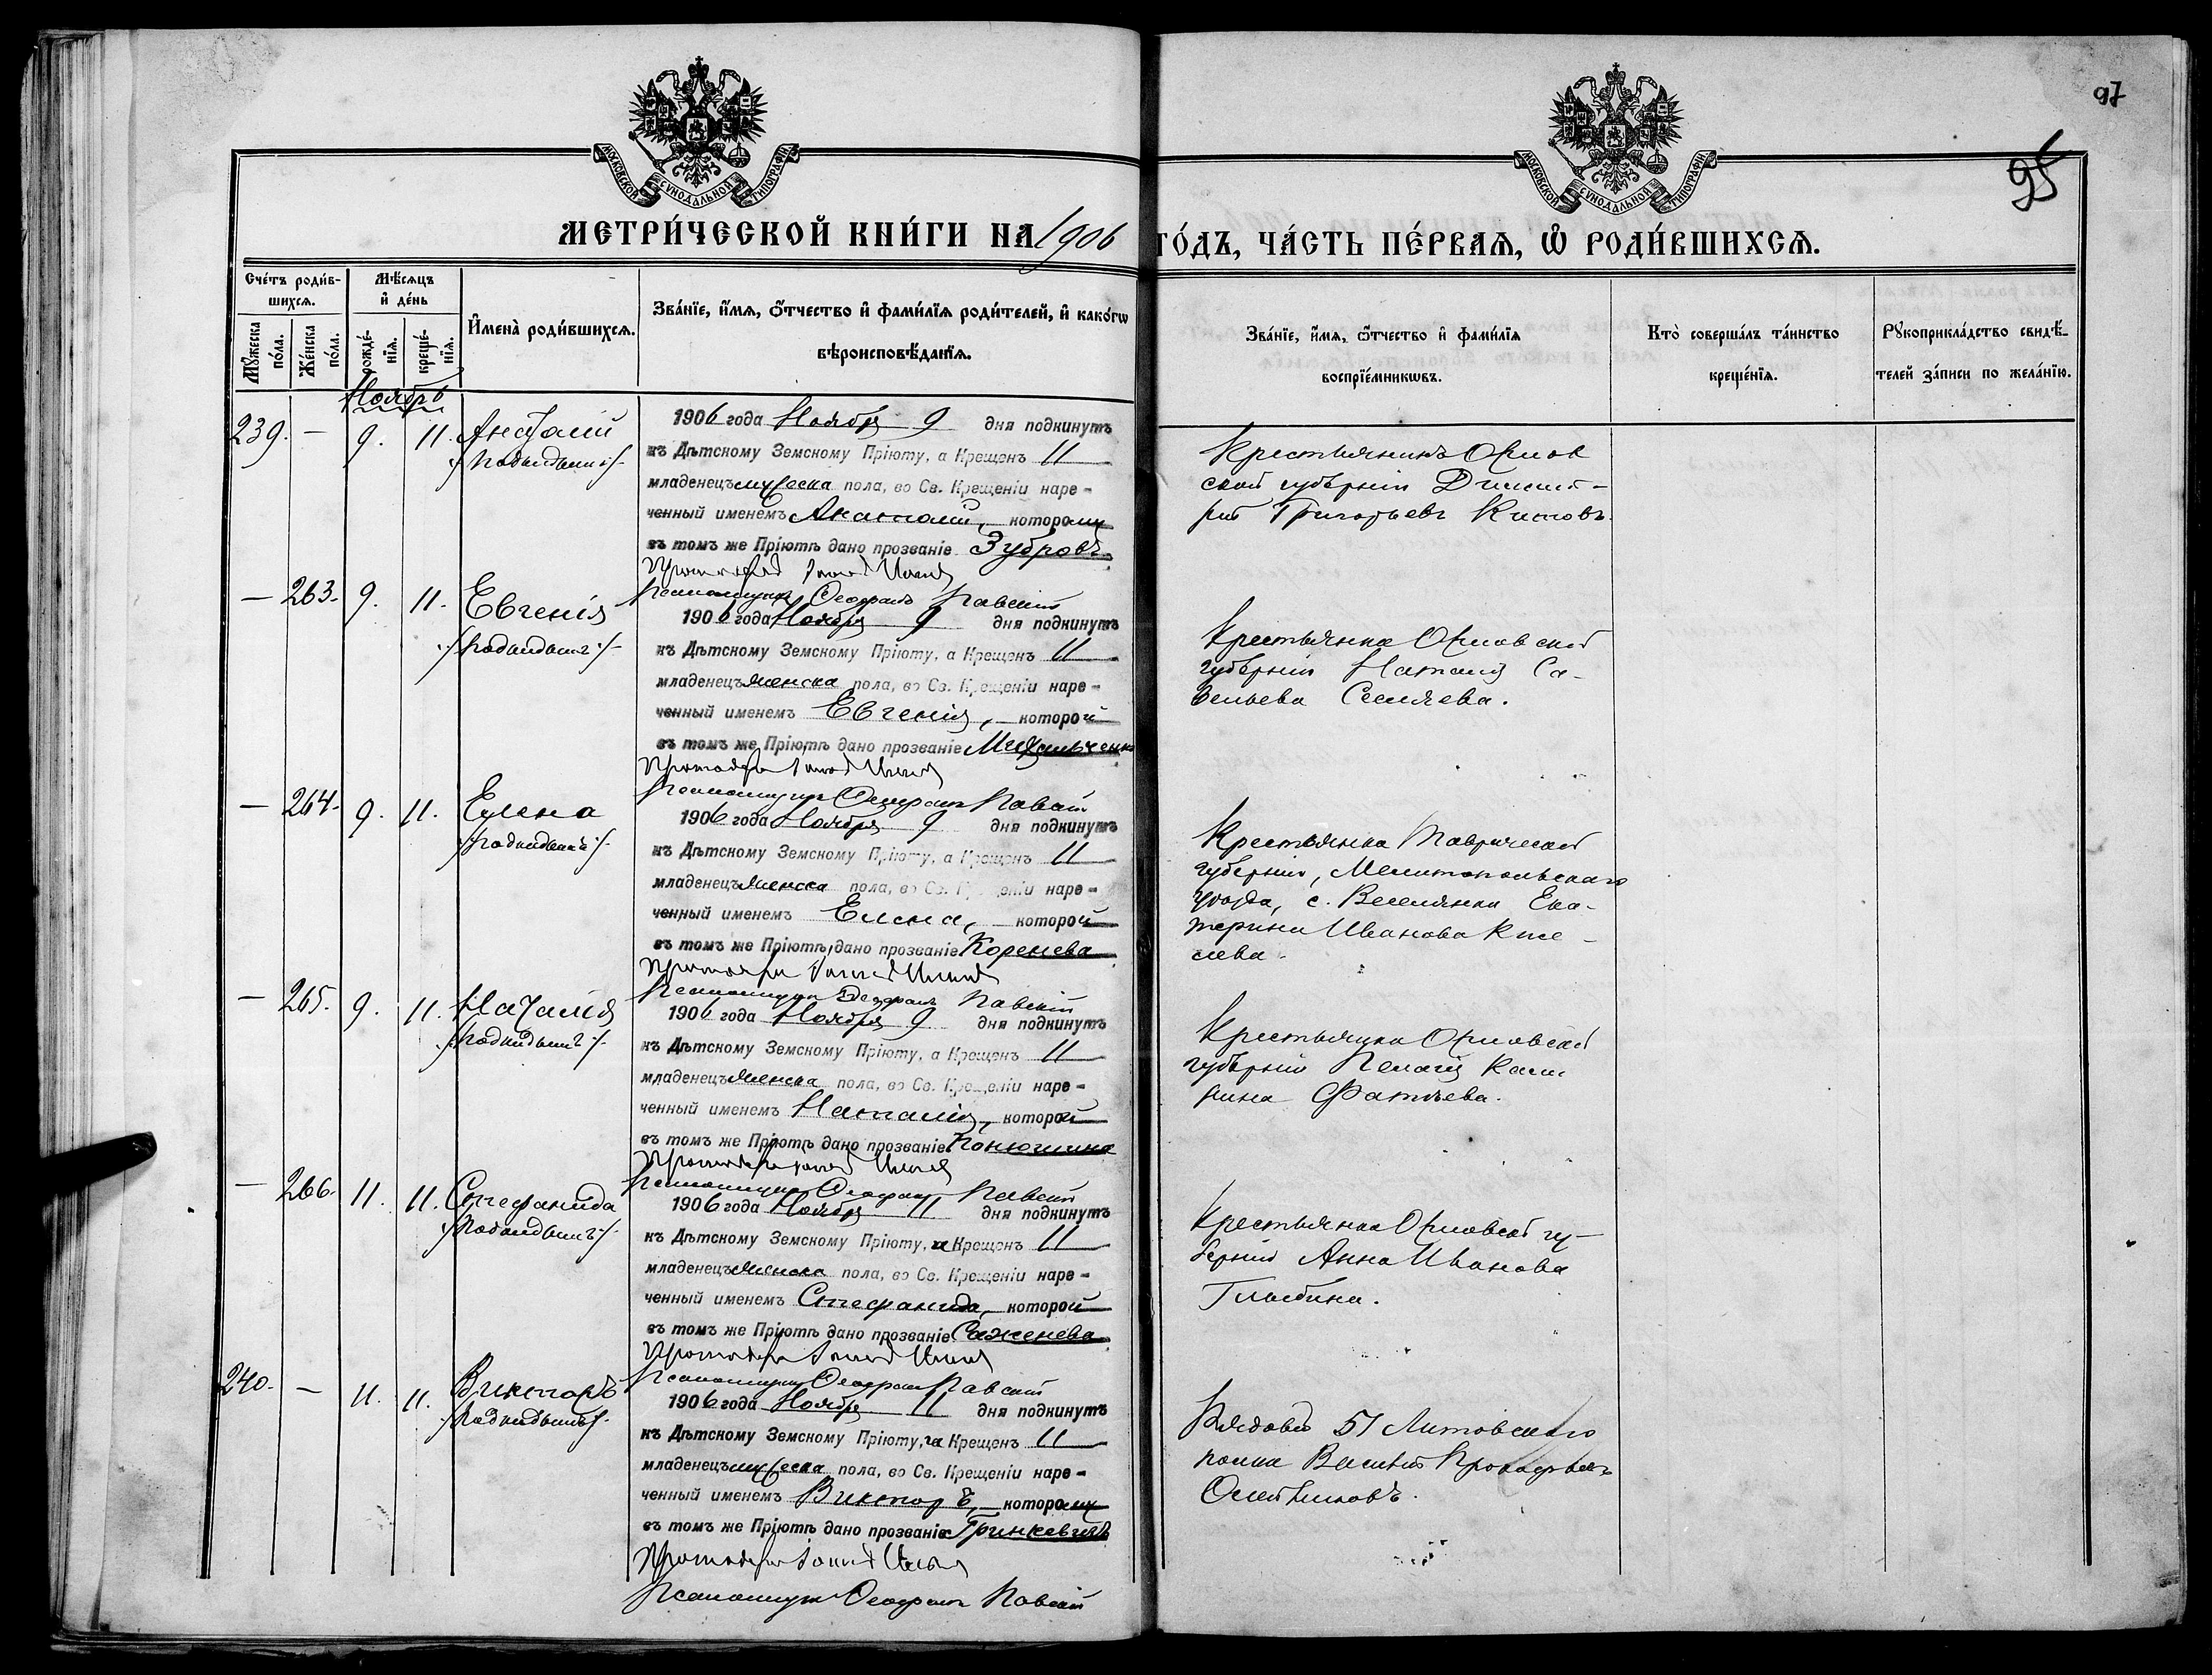 97
95
МОСКОВСКОЙ СѴНОДАЛЬНОЙ ТИПОГРАФІИ
МОСКОВСКОЙ СѴНОДАЛЬНОЙ ТИПОГРАФІИ
МЕТРИ́ЧЕСКОЙ КНИ́ГИ НА 1906 ГО́ДЪ, ЧА́СТЬ ПЕ́РВАѦ, Ѡ҆ РОДИ́ВШИХСѦ.
Сче́тъ роди́в-
шихсѧ.
Мꙋ́жеска по́ла.
Же́нска по́ла.
Мѣ́сѧцъ
и҆ де́нь
рожде́-
нїѧ.
креще́-
нїѧ.
И҆мена̀ роди́вшихсѧ.
Зва́нїе, и҆́мѧ, ѻ҆́тчество и҆ фами́лїѧ роди́телей, и҆ како́гѡ
вѣроисповѣ́данїѧ.
Зва́нїе, и҆́мѧ, ѻ҆́тчество и҆ фами́лїѧ
воспрїе́мникѡвъ.
Кто̀ соверша́лъ та́инство
креще́нїѧ.
Рꙋкоприкла́дство свидѣ́-
телей за́писи по жела́нїю.
Ноябрь
239. — 9. 11. Анатолій
/подкидышъ/
1906 года Ноября 9 дня подкинутъ
къ Дѣтскому Земскому Пріюту, а Крещенъ 11
младенецъ мужеска пола, во Св. Крещеніи наре-
ченный именемъ Анатолій, которому
въ томъ же Пріютѣ дано прозваніе Зубровъ.
Псаломщикъ Ѳеофанъ Павскій
Крестьянинъ Орлов
ской губерніи Димит-
рій Григорьевъ Китовъ.
— 263. 9. 11. Евгенія
/подкидышъ/
1906 года Ноября 9 дня подкинутъ
къ Дѣтскому Земскому Пріюту, а Крещенъ 11
младенецъ женска пола, во Св. Крещеніи наре-
ченный именемъ Евгенія, которой
въ томъ же Пріютѣ дано прозваніе
Псаломщикъ Ѳеофанъ Павскій
Крестьянка Орловской
губерніи Наталія Са-
вельева
— 264. 9. 11. Елена
/подкидышъ/
1906 года Ноября 9 дня подкинутъ
къ Дѣтскому Земскому Пріюту, а Крещенъ 11
младенецъ женска пола, во Св. Крещеніи наре-
ченный именемъ Елена, которой
въ томъ же Пріютѣ, дано прозваніе Коренева
Псаломщикъ Ѳеофанъ Павскій
Крестьянка Таврической
губерніи, Мелитопольскаго
уѣзда, с. Веселянки Ека-
терина Иванова Кисе-
лева.
— 265. 9. 11. Наталія
/подкидышъ/
1906 года Ноября 9 дня подкинутъ
къ Дѣтскому Земскому Пріюту, а Крещенъ 11
младенецъ женска пола, во Св. Крещеніи наре-
ченный именемъ Наталія, которой
въ томъ же Пріютѣ дано прозваніе Конюшина
Псаломщикъ Ѳеофанъ Павскій
Крестьянка Орловской
губерніи Пелагія
Фатѣева.
— 266. 11. 11. Стефанида
/подкидышъ/
1906 года Ноября 11 дня подкинутъ
къ Дѣтскому Земскому Пріюту, и Крещенъ 11
младенецъ женска пола, во Св. Крещеніи наре-
ченный именемъ Стефанида, которой
въ томъ же Пріютѣ дано прозваніе Саженева
Псаломщикъ Ѳеофанъ Павскій
Крестьянка Орловской гу-
берніи Анна Иванова
240. — 11. 11. Викторъ
/подкидышъ/
1906 года Ноября 11 дня подкинутъ
къ Дѣтскому Земскому Пріюту, и Крещенъ 11
младенецъ мужеска пола, во Св. Крещеніи наре-
ченный именемъ Викторъ, которому
въ томъ же Пріютѣ дано прозваніе Гринкевичъ
Псаломщикъ Ѳеофанъ Павскій
Рядовой 51 Литовскаго
полка Василій Прокофьевъ
Олейниковъ.